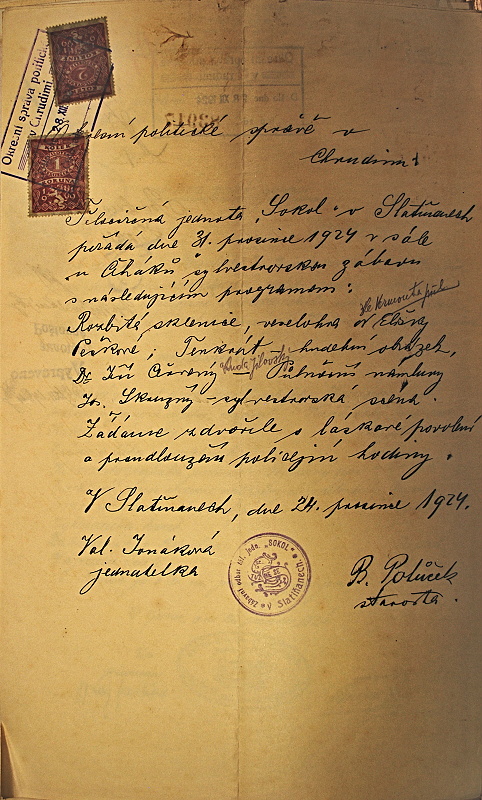 Okresní správa politická
v Chrudimi
28.XII
KOLEK
1
KORUNA
politické správě v
Chrudimi
Tělocvičná jednota „Sokol" v Slatiňanech
pořádá dne 31. prosince 1924 v sále
u Čiháků sylvestrovskou zábavu
s následujícím programem:
Rozbitá sklenice, veselohra od Elišky
Peškové; Tenkrát hudební obrázek,
Dr Jiří Červený námluvy
Jos. Skružný – sylvestrovská scéna.
Žádáme zdvořile o laskavé povolení
a prodloužení policejní hodiny.
V Slatiňanech, dne 24. prosince 1924.
Val. Jonáková
jednatelka
Zábavní odbor těl. jedn. „SOKOL" v Slatiňanech
B. Polůček
starosta.